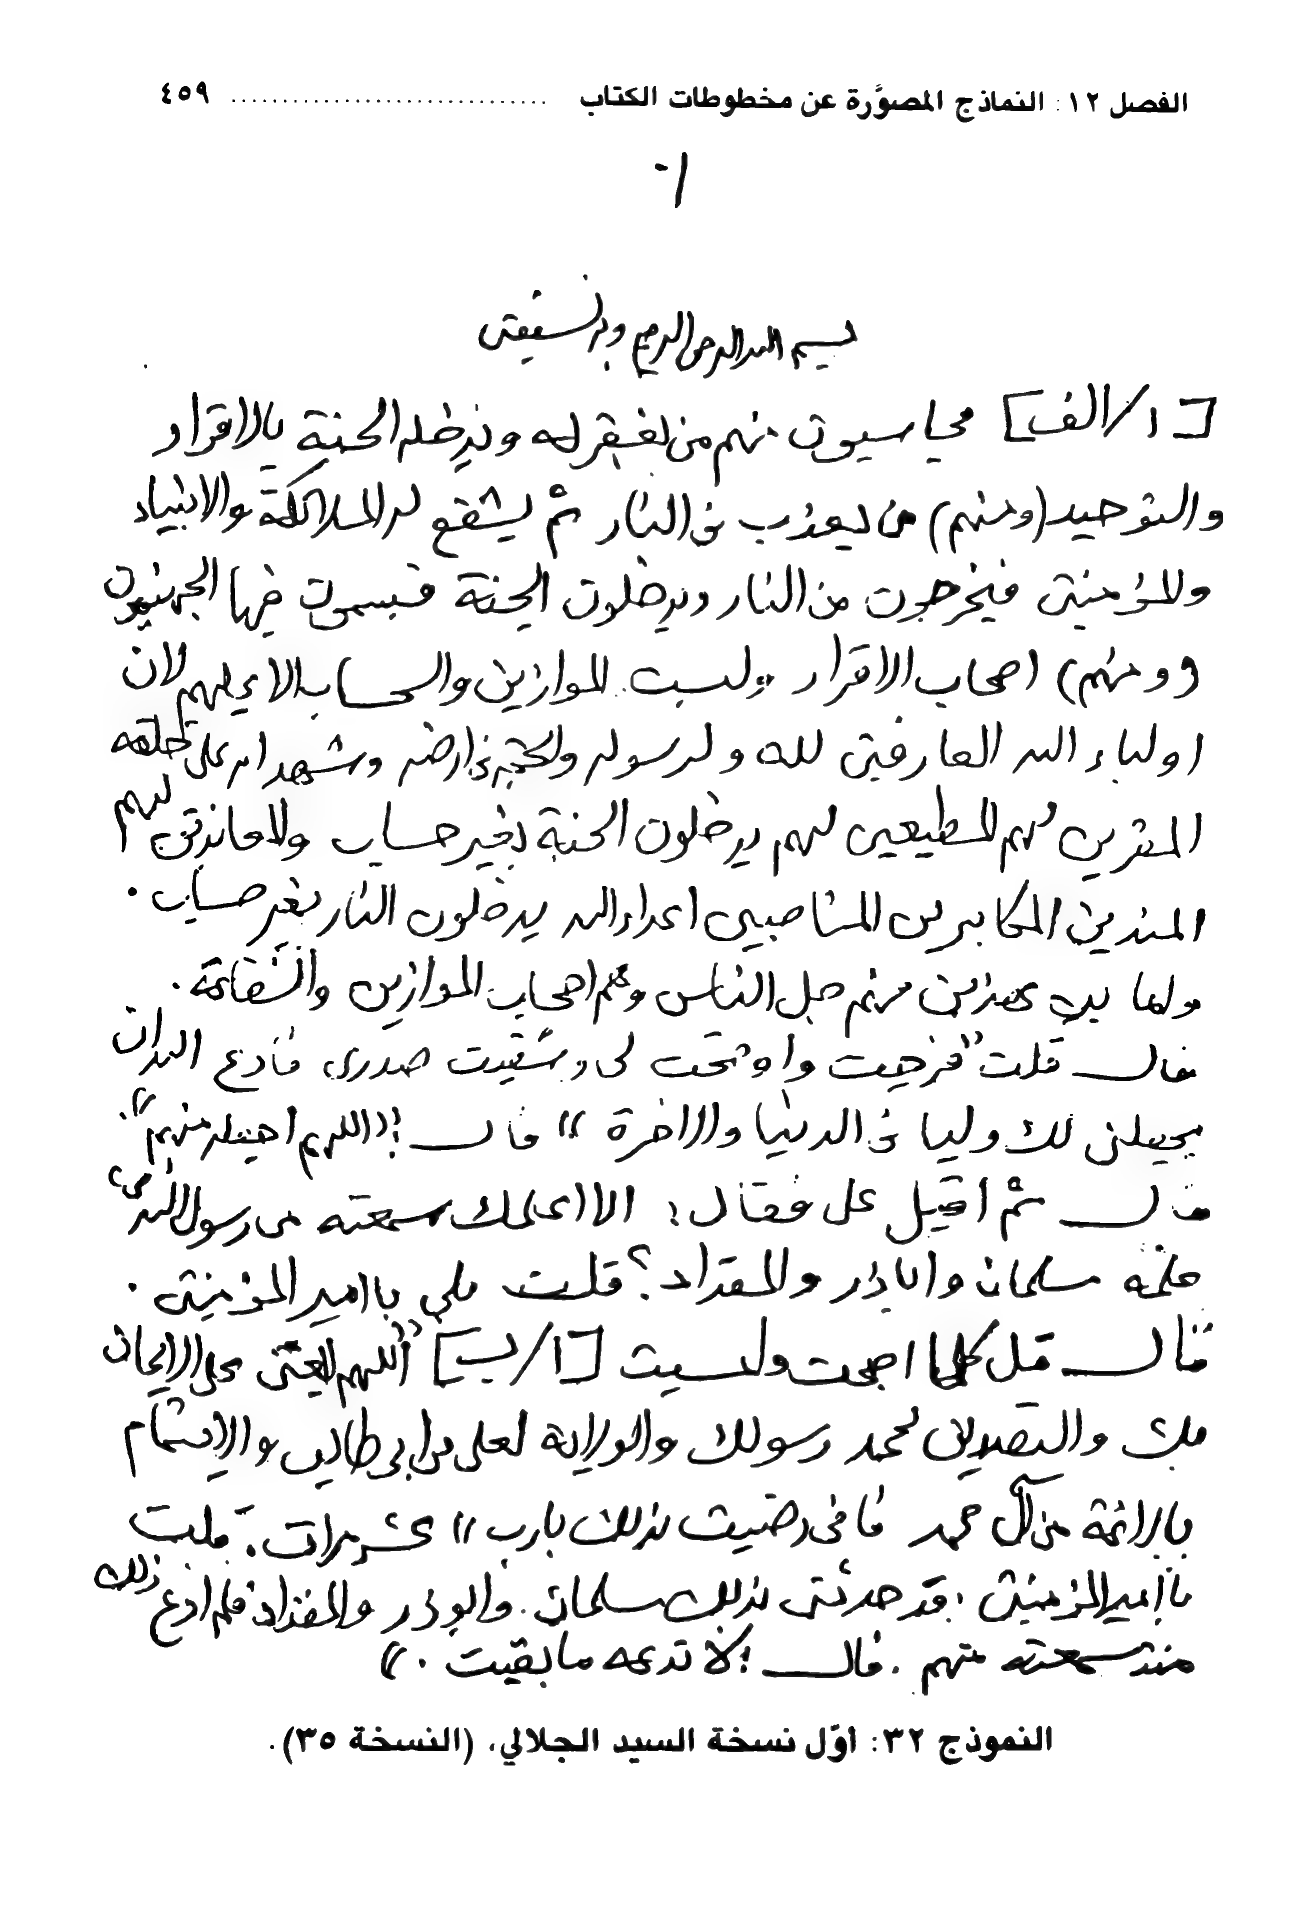 الفصل ١٢: النماذج المصوَّرة عن مخطوطات الكتاب .............................. ٤٥٩
١-
بسم الله الرحمن الرحيم وبه نستعين
[١/الف] محاسبون منهم من يغفر له ويدخله الجنة بالاقرار
والتوحيد (ومنهم) من يعذب في النار ثم يشفع له الملائكة والانبياء
والمؤمنين فيخرجون من النار ويدخلون الجنة فيسمون فيها الجهنميون
(ومنهم) اصحاب الاقرار وليست الموازين والحساب الا عليهم لان
اولياء الله العارفين لله ولرسوله والحجة في ارضه وشهدائه على خلقه
المقرين لهم المطيعين لهم يدخلون الجنة بغير حساب
المكابرين المناصبين اعداء الله يدخلون النار بغير حساب .
جل الناس وهم اصحاب الموازين والشفاعة .
قال قلت "فرجت واوضحت لي وشفيت صدري فادع الله ان
يجعلني لك وليا في الدنيا والاخرة" قال: "اللهم اجعله منهم".
قال ثم اقبل علي فقال: الا اعلمك سمعته من رسول الله ص
علمه سلمان واباذر والمقداد؟ قلت بلى يا امير المؤمنين .
قال قل كلما اصبحت وامسيت [١/ب] "اللهم ابعثني على الايمان
بك والتصديق لمحمد رسولك والولاية لعلي بن ابي طالب والايتمام
بالائمة من آل محمد فاني رضيت بذلك يارب" عشر مرات. قلت
يا امير المؤمنين ، قد حدثني بذلك سلمان وابوذر والمقداد فلم ادع ذلك
منذ سمعته منهم . قال: لا تدعه ما بقيت .")
النموذج ٣٢: اوّل نسخة السيد الجلالي، (النسخة ٣٥).